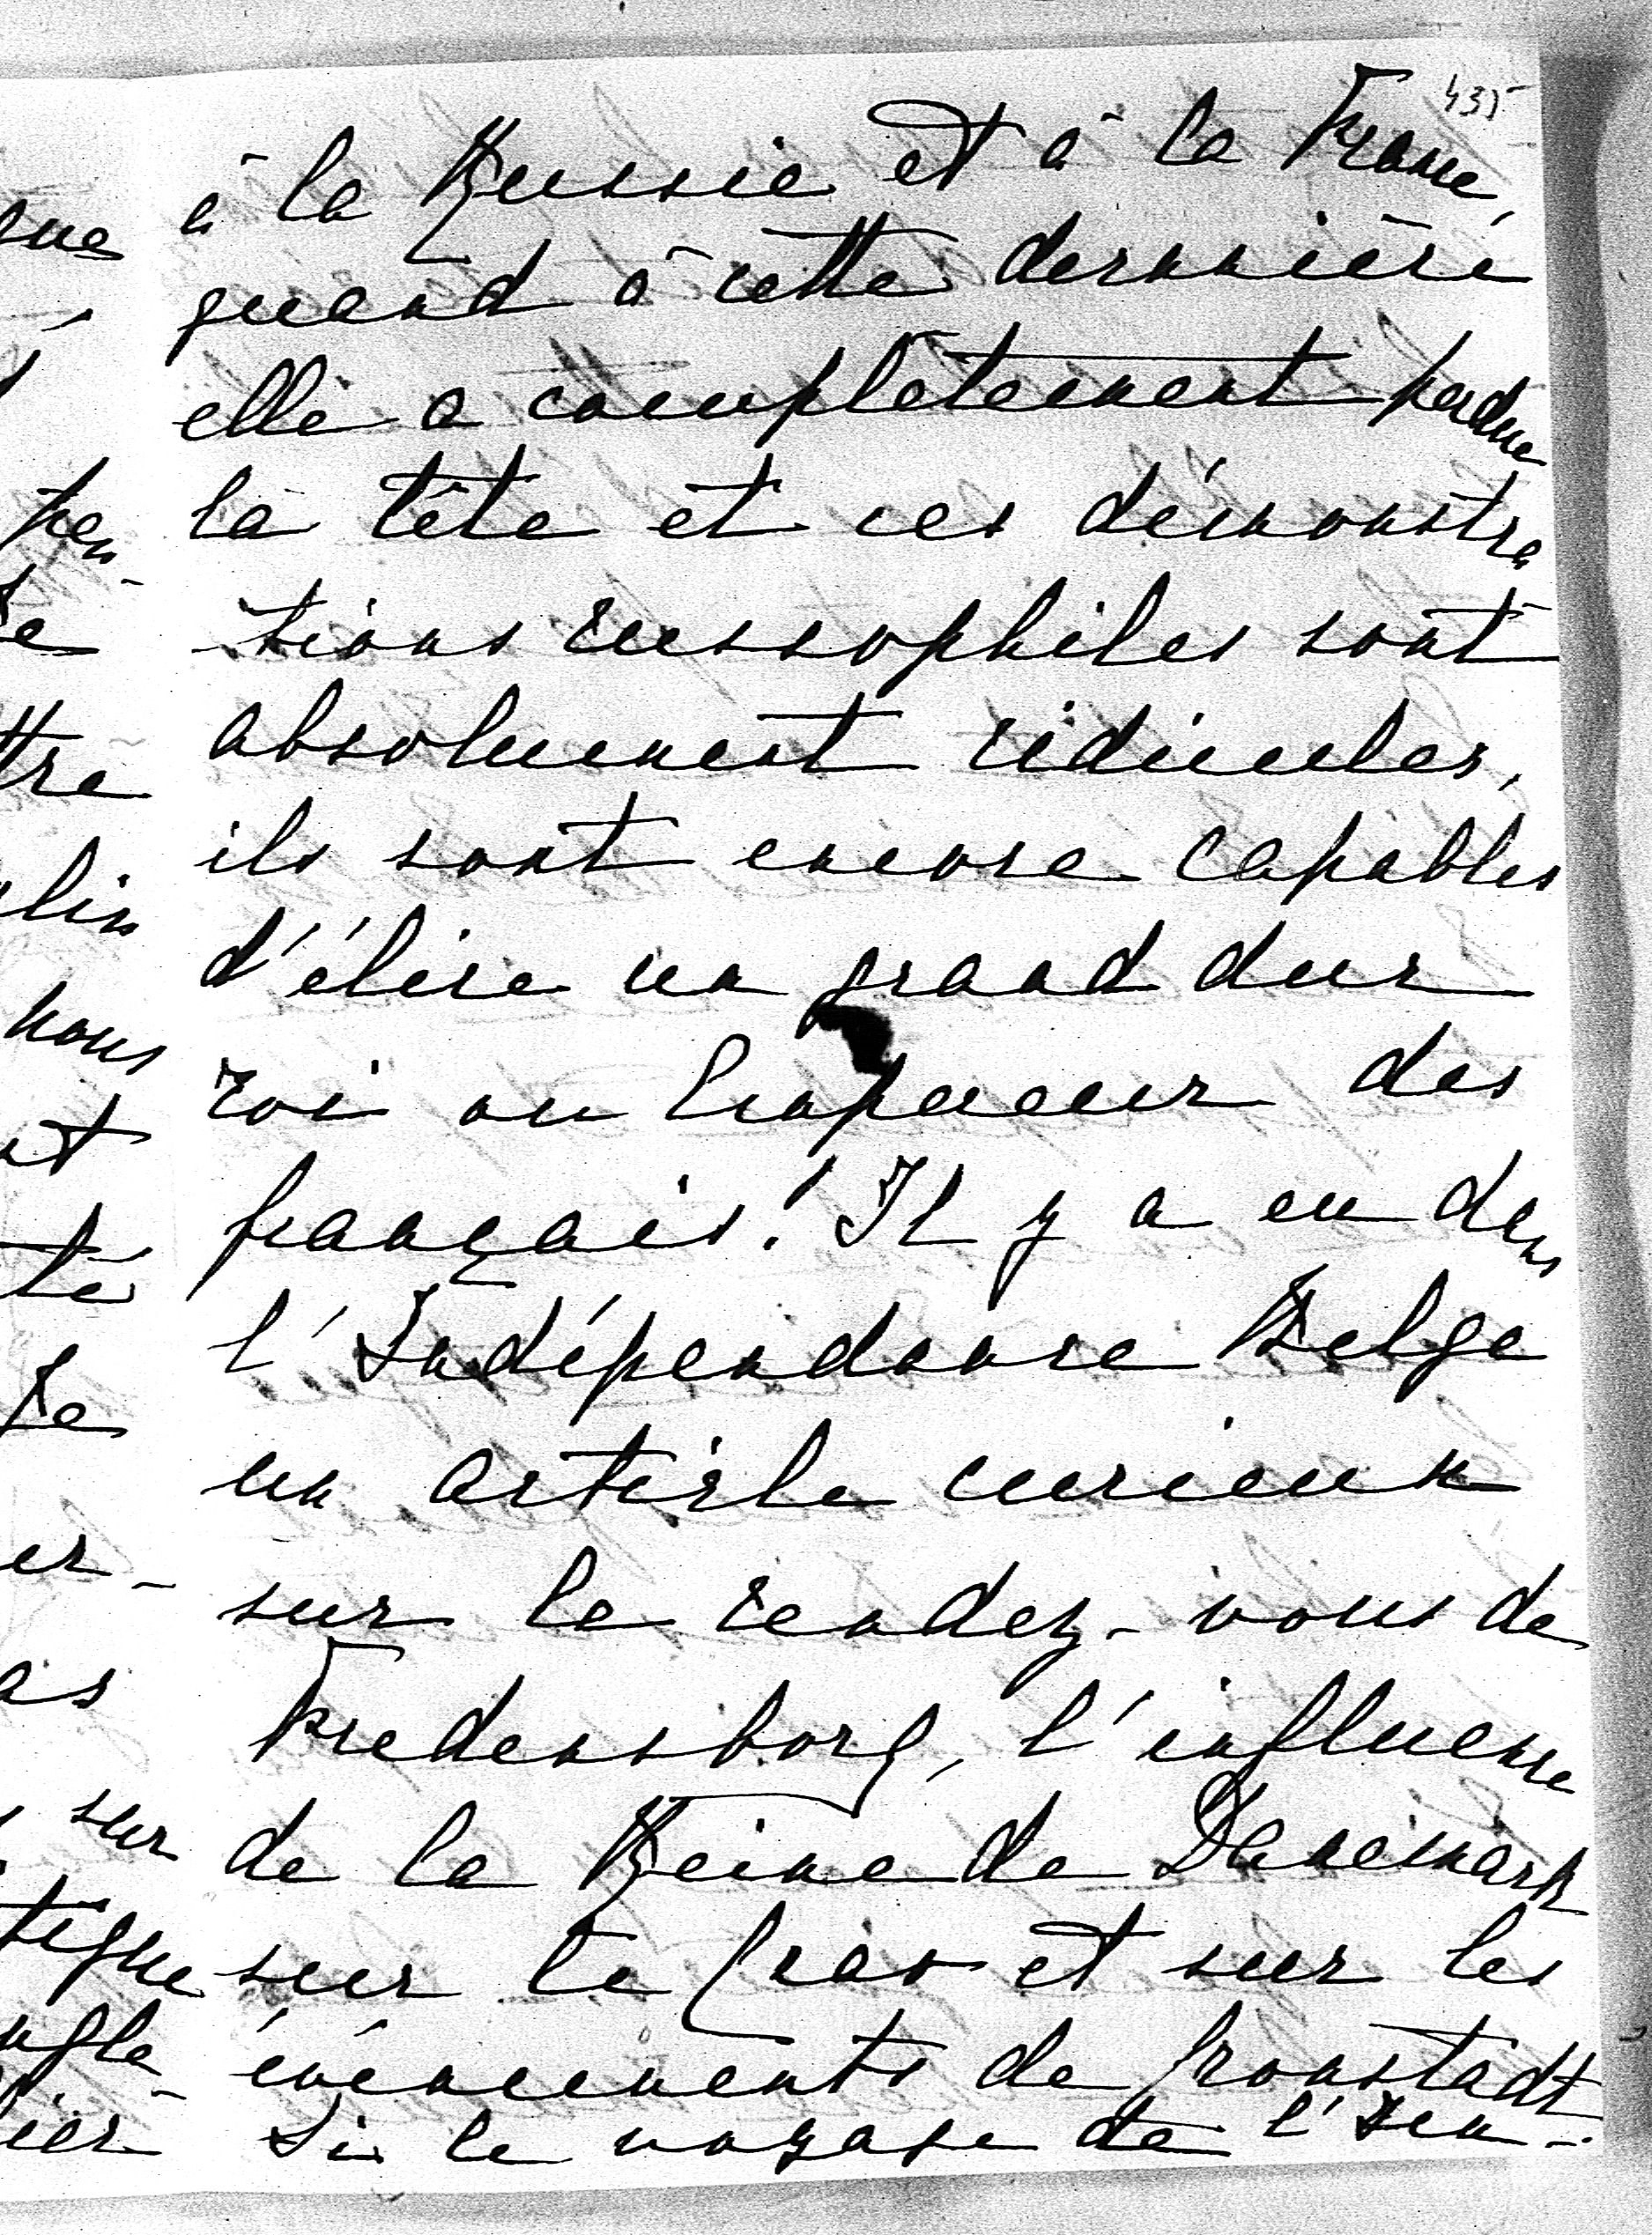 435
à la Russie et à la France,
quand à cette dernière
elle a complètement perdue
la tête et ces démonstra
tions russophiles sont
absolument ridicules,
ils sont encore capables
d'élire un grand duc
roi ou Empereur des
français! Il y a eu dans
l'Indépendance Belge
un article curieux
sur le rendez-vous de
Fredensborg, l'influence
de la Reine de Danemark
sur le Czar et sur les
événements de Cronstadt
Si le voyage de l'Em-